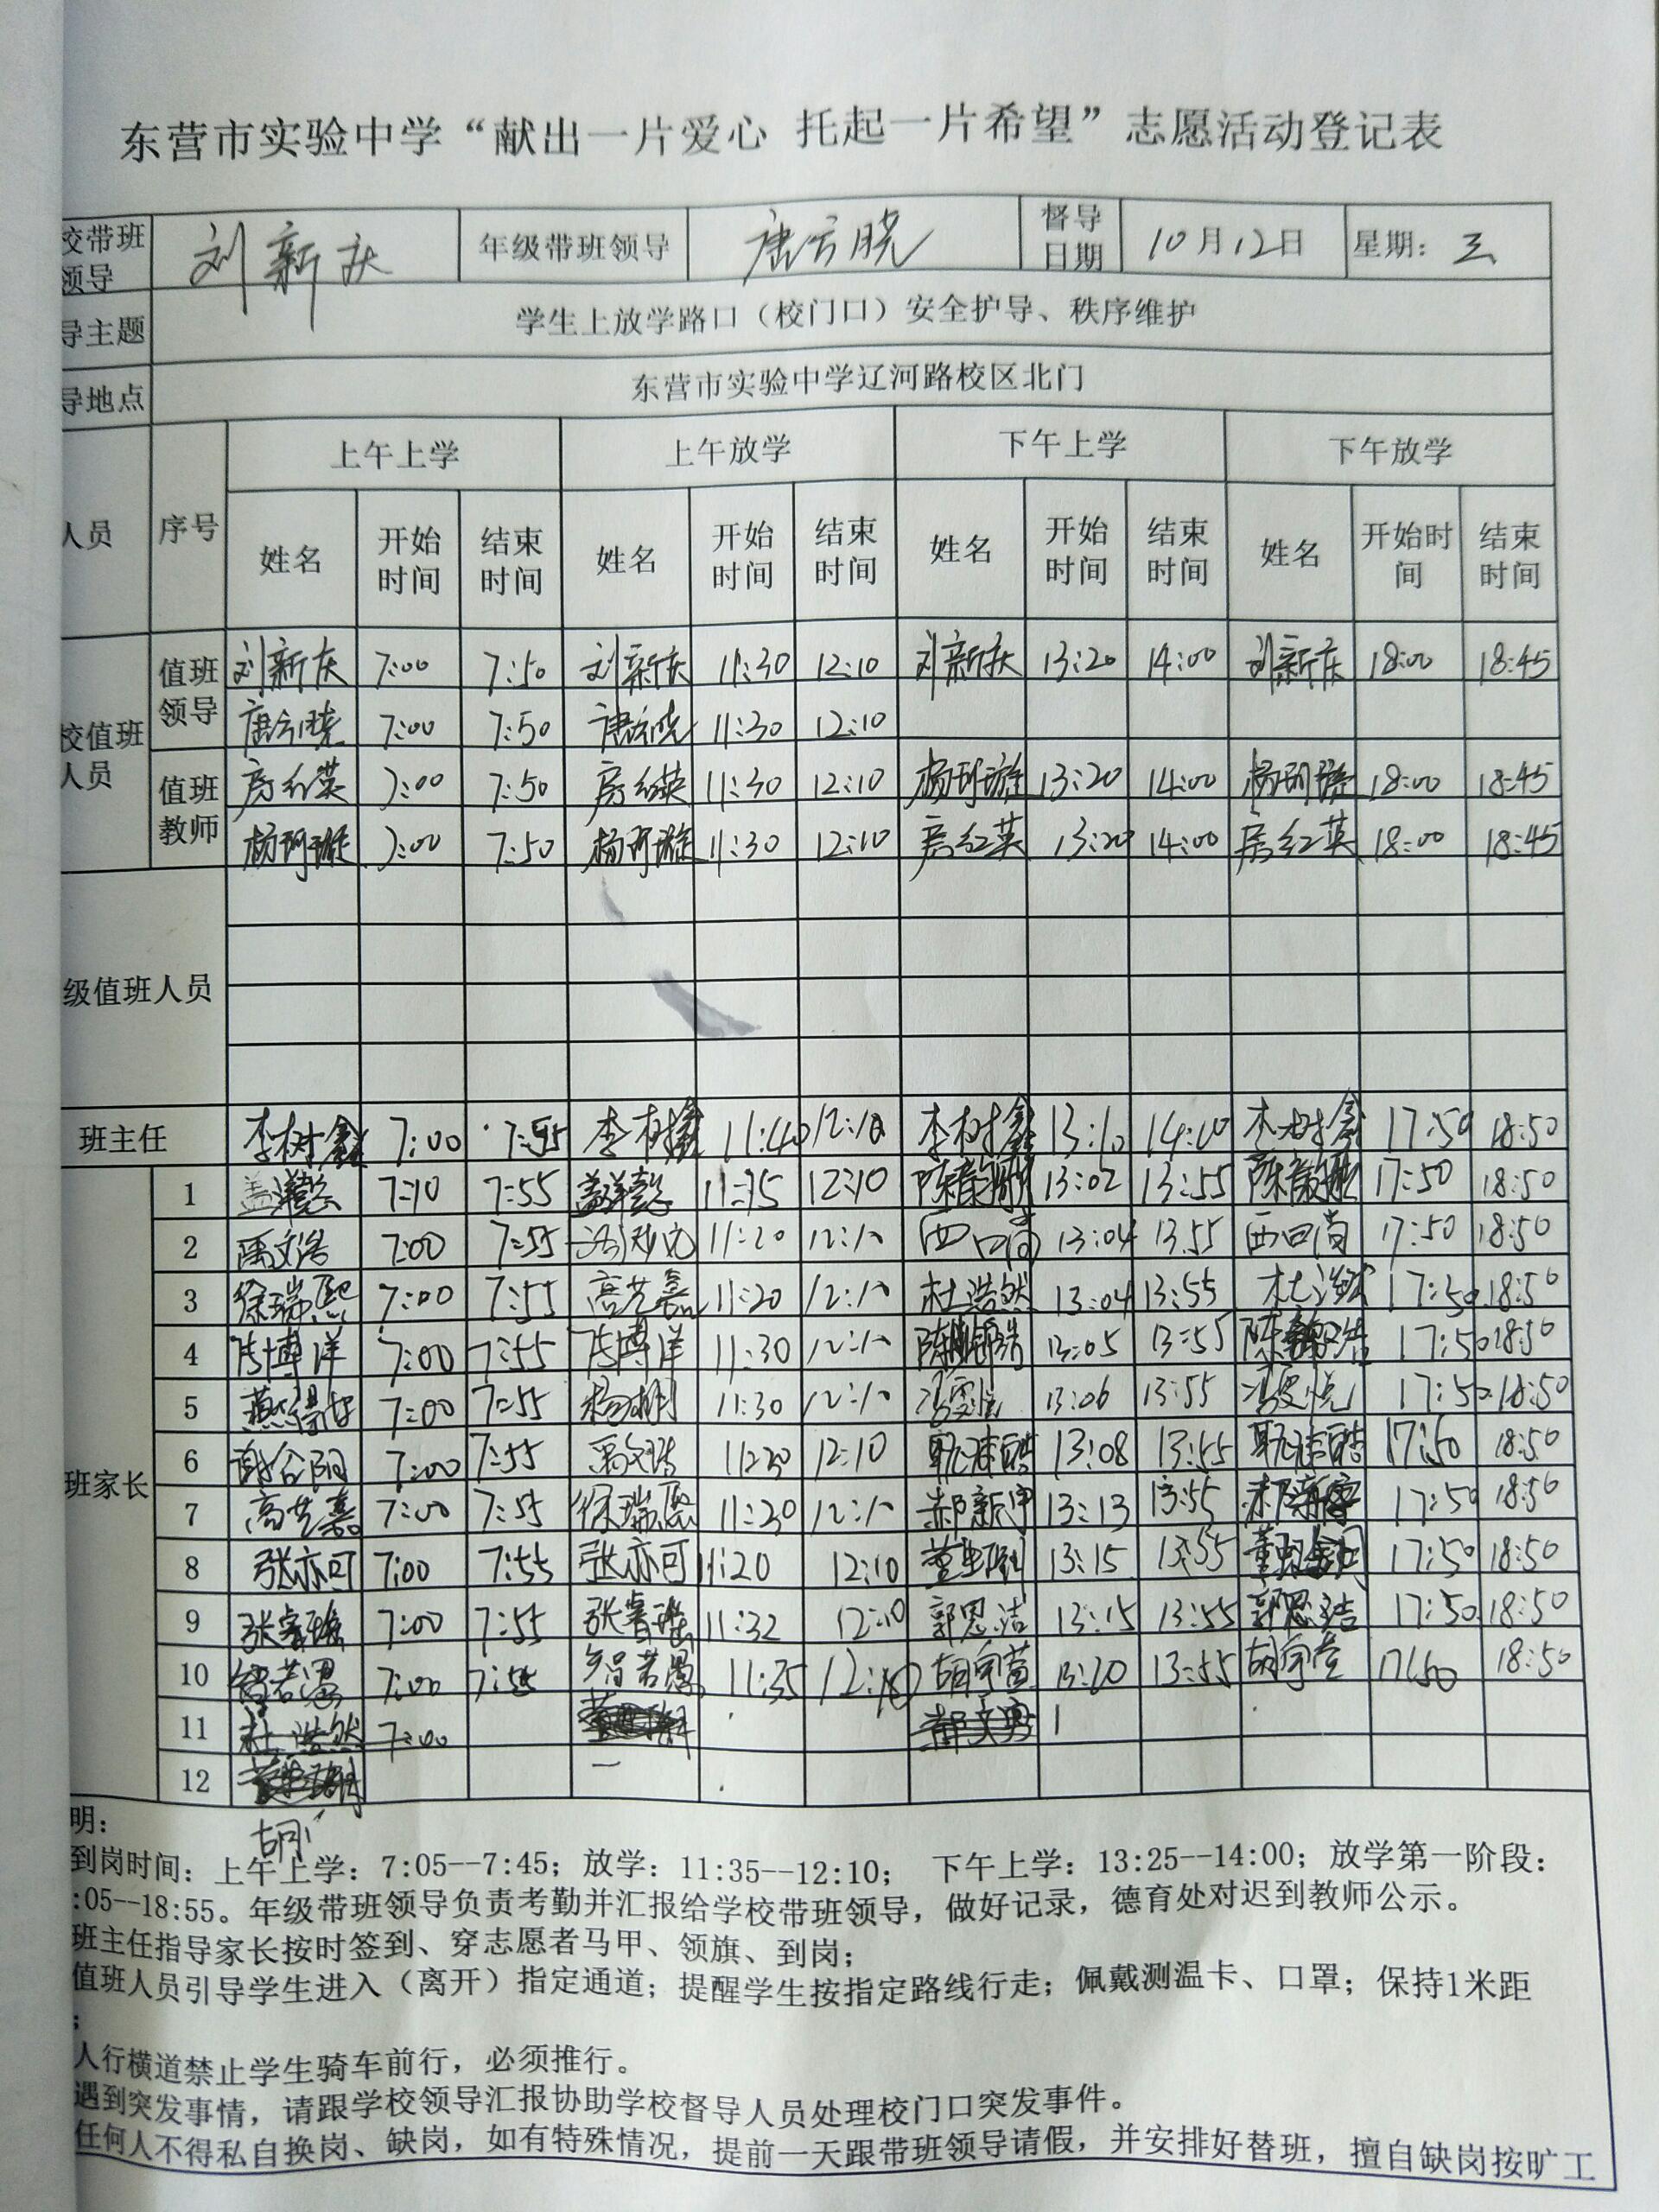 东营市实验中学“献出一片爱心 托起一片希望”志愿活动登记表
校带班领导 刘新庆 年级带班领导 唐方晓 督导日期 10月12日 星期：三
导主题 学生上放学路口（校门口）安全护导、秩序维护
导地点 东营市实验中学辽河路校区北门
人员 序号 上午上学 上午放学 下午上学 下午放学
姓名 开始时间 结束时间 姓名 开始时间 结束时间 姓名 开始时间 结束时间 姓名 开始时间 结束时间
校值班人员 值班领导 刘新庆 7:00 7:50 刘新庆 11:30 12:10 刘新庆 13:20 14:00 刘新庆 18:00 18:45
唐方晓 7:00 7:50 唐方晓 11:30 12:10
值班教师 房红英 7:00 7:50 房红英 11:30 12:10 杨珂璇 13:20 14:00 杨珂璇 18:00 18:45
杨珂璇 7:00 7:50 杨珂璇 11:30 12:10 房红英 13:20 14:00 房红英 18:00 18:45
级值班人员
班主任 李树鑫 7:00 7:55 李树鑫 11:40 12:10 李树鑫 13:10 14:10 李树鑫 17:50 18:50
班家长
1 盖洋懿 7:10 7:55 盖洋懿 12:10 13:02 13:55 17:50 18:50
2 禹文浩 7:00 7:55 11:20 12:10 13:04 13:55 17:50 18:50
3 徐瑞熙 7:00 7:55 高艺嘉 11:20 12:10 杜浩然 13:04 13:55 杜浩然 17:50 18:50
4 博洋 7:00 7:55 博洋 11:30 12:10 13:05 13:55 17:50 18:50
5 7:00 7:55 11:30 12:10 冯雯悦 13:06 13:55 冯雯悦 17:50 18:50
6 7:00 7:55 11:20 12:10 13:08 13:55 17:50 18:50
7 高艺嘉 7:00 7:55 徐瑞熙 11:20 12:10 郝新宇 13:13 13:55 郝新宇 17:50 18:50
8 张亦可 7:00 7:55 张亦可 11:20 12:10 13:15 13:55 17:50 18:50
9 张睿 7:00 7:55 张睿 11:32 12:10 郭思洁 13:15 13:55 郭思洁 17:50 18:50
10 智若愚 7:00 7:55 智若愚 11:35 12:10 胡宇萱 13:20 13:55 胡宇萱 17:50 18:50
11 杜浩然 7:00
12
胡
明：
到岗时间：上午上学：7:05--7:45；放学：11:35--12:10； 下午上学：13:25--14:00；放学第一阶段：
:05--18:55。年级带班领导负责考勤并汇报给学校带班领导，做好记录，德育处对迟到教师公示。
班主任指导家长按时签到、穿志愿者马甲、领旗、到岗；
值班人员引导学生进入（离开）指定通道；提醒学生按指定路线行走；佩戴测温卡、口罩；保持1米距
；
人行横道禁止学生骑车前行，必须推行。
遇到突发事情，请跟学校领导汇报协助学校督导人员处理校门口突发事件。
任何人不得私自换岗、缺岗，如有特殊情况，提前一天跟带班领导请假，并安排好替班，擅自缺岗按旷工